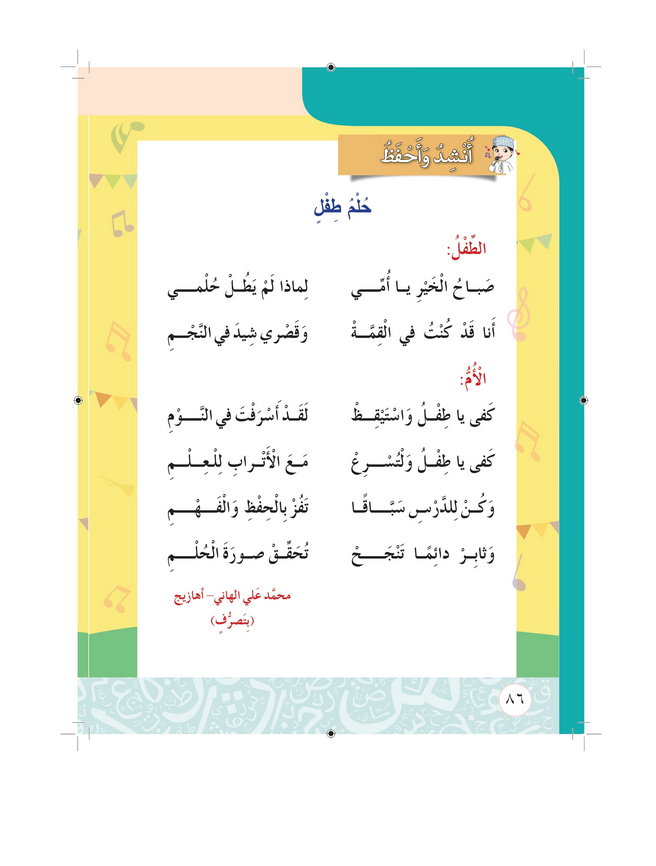 أُنْشِدُ وَأَحْفَظُ
حُلْمُ طِفْلٍ
الطِّفْلُ:
صَبـاحُ الْخَيْرِ يـا أُمِّـــي لِماذا لَمْ يَطُـلْ حُلْمـــي
أَنا قَدْ كُنْتُ في الْقِمَّـةْ وَقَصْري شيدَ في النَّجْـــمِ
الْأُمُّ:
كَفى يا طِفْـلُ وَاسْتَيْقِـظْ لَقَـدْ أَسْرَفْتَ في النَّـــوْمِ
كَفى يا طِفْـلُ وَلْتُسْـــرِعْ مَـعَ الْأَتْـرابِ لِلْعِلْـــمِ
وَكُـنْ لِلدَّرْسِ سَبَّـــاقًـا تَفُزْ بِالْحِفْظِ وَالْفَـــهْـــمِ
وَثابِـرْ دائِمًـا تَنْجَـــحْ تُحَقِّـقْ صـورَةَ الْحُلْـــمِ
محمَّد عَلي الهاني– أهازيج
(بِتَصرُّفٍ)
٨٦